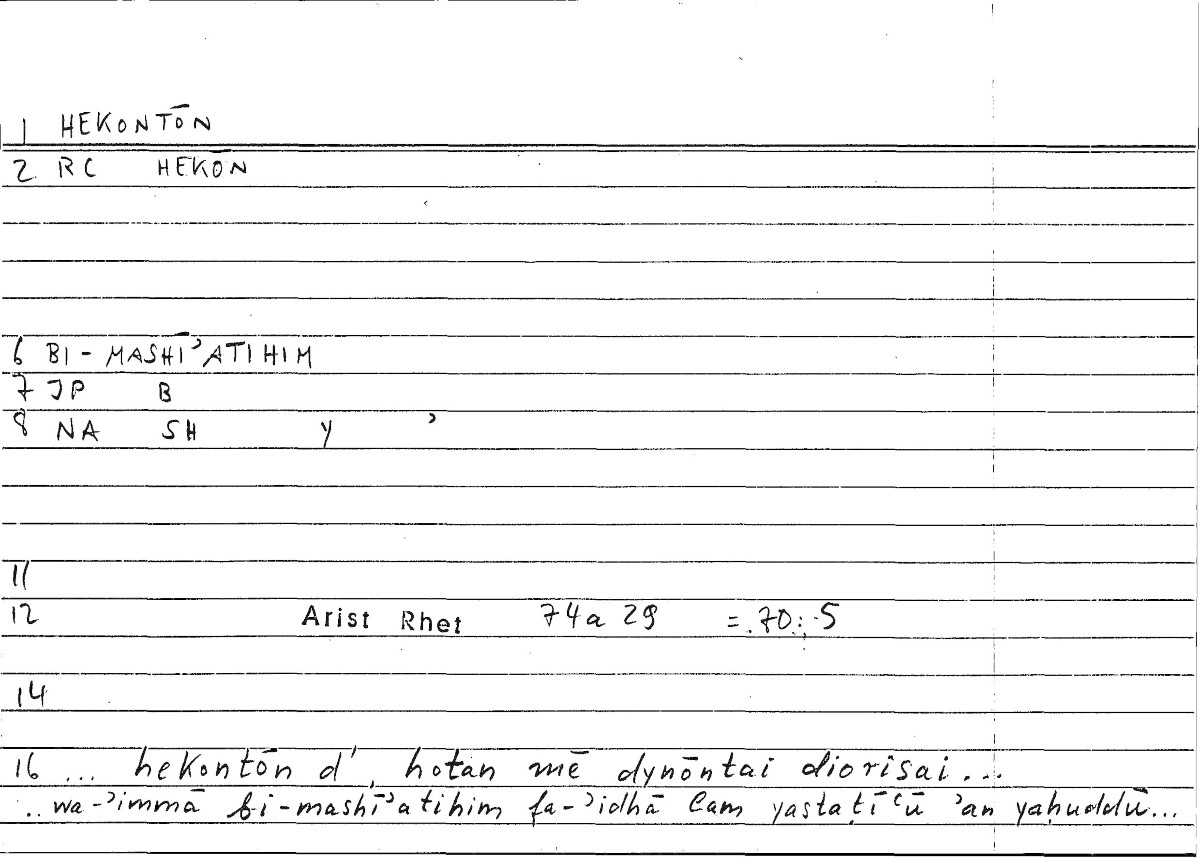 1 HEKONTŌN
2 RC HEKŌN
6 BI-MASHĪʾATIHIM
7 JP B
8 NA SH Y ʾ
11
12 Arist Rhet 74a 29 = 70: 5
14
16 ... hekontōn d', hotan mē dynōntai diorisai ...
.. wa-ʾimmā bi-mashīʾatihim fa-ʾidhā lam yastaṭīʿū ʾan yaḥuddū...